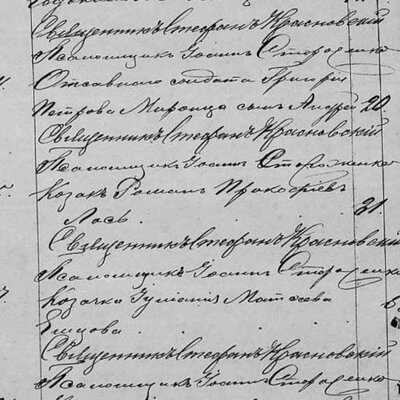 Священникъ Стефанъ Красновскій
Псаломщикъ Іоаннъ Стороженко
Отставного солдата Григорія
Петрова Миронца сынъ Андрей 20
Священникъ Стефанъ Красновскій
Псаломщикъ Іоаннъ Стороженко
Козакъ Романъ Прокофіевъ
Лось. 31.
Священникъ Стефанъ Красновскій
Псаломщикъ Іоаннъ Стороженко
Козачка Іуліанія Матѳеева
Священникъ Стефанъ Красновскій
Псаломщикъ Іоаннъ Стороженко